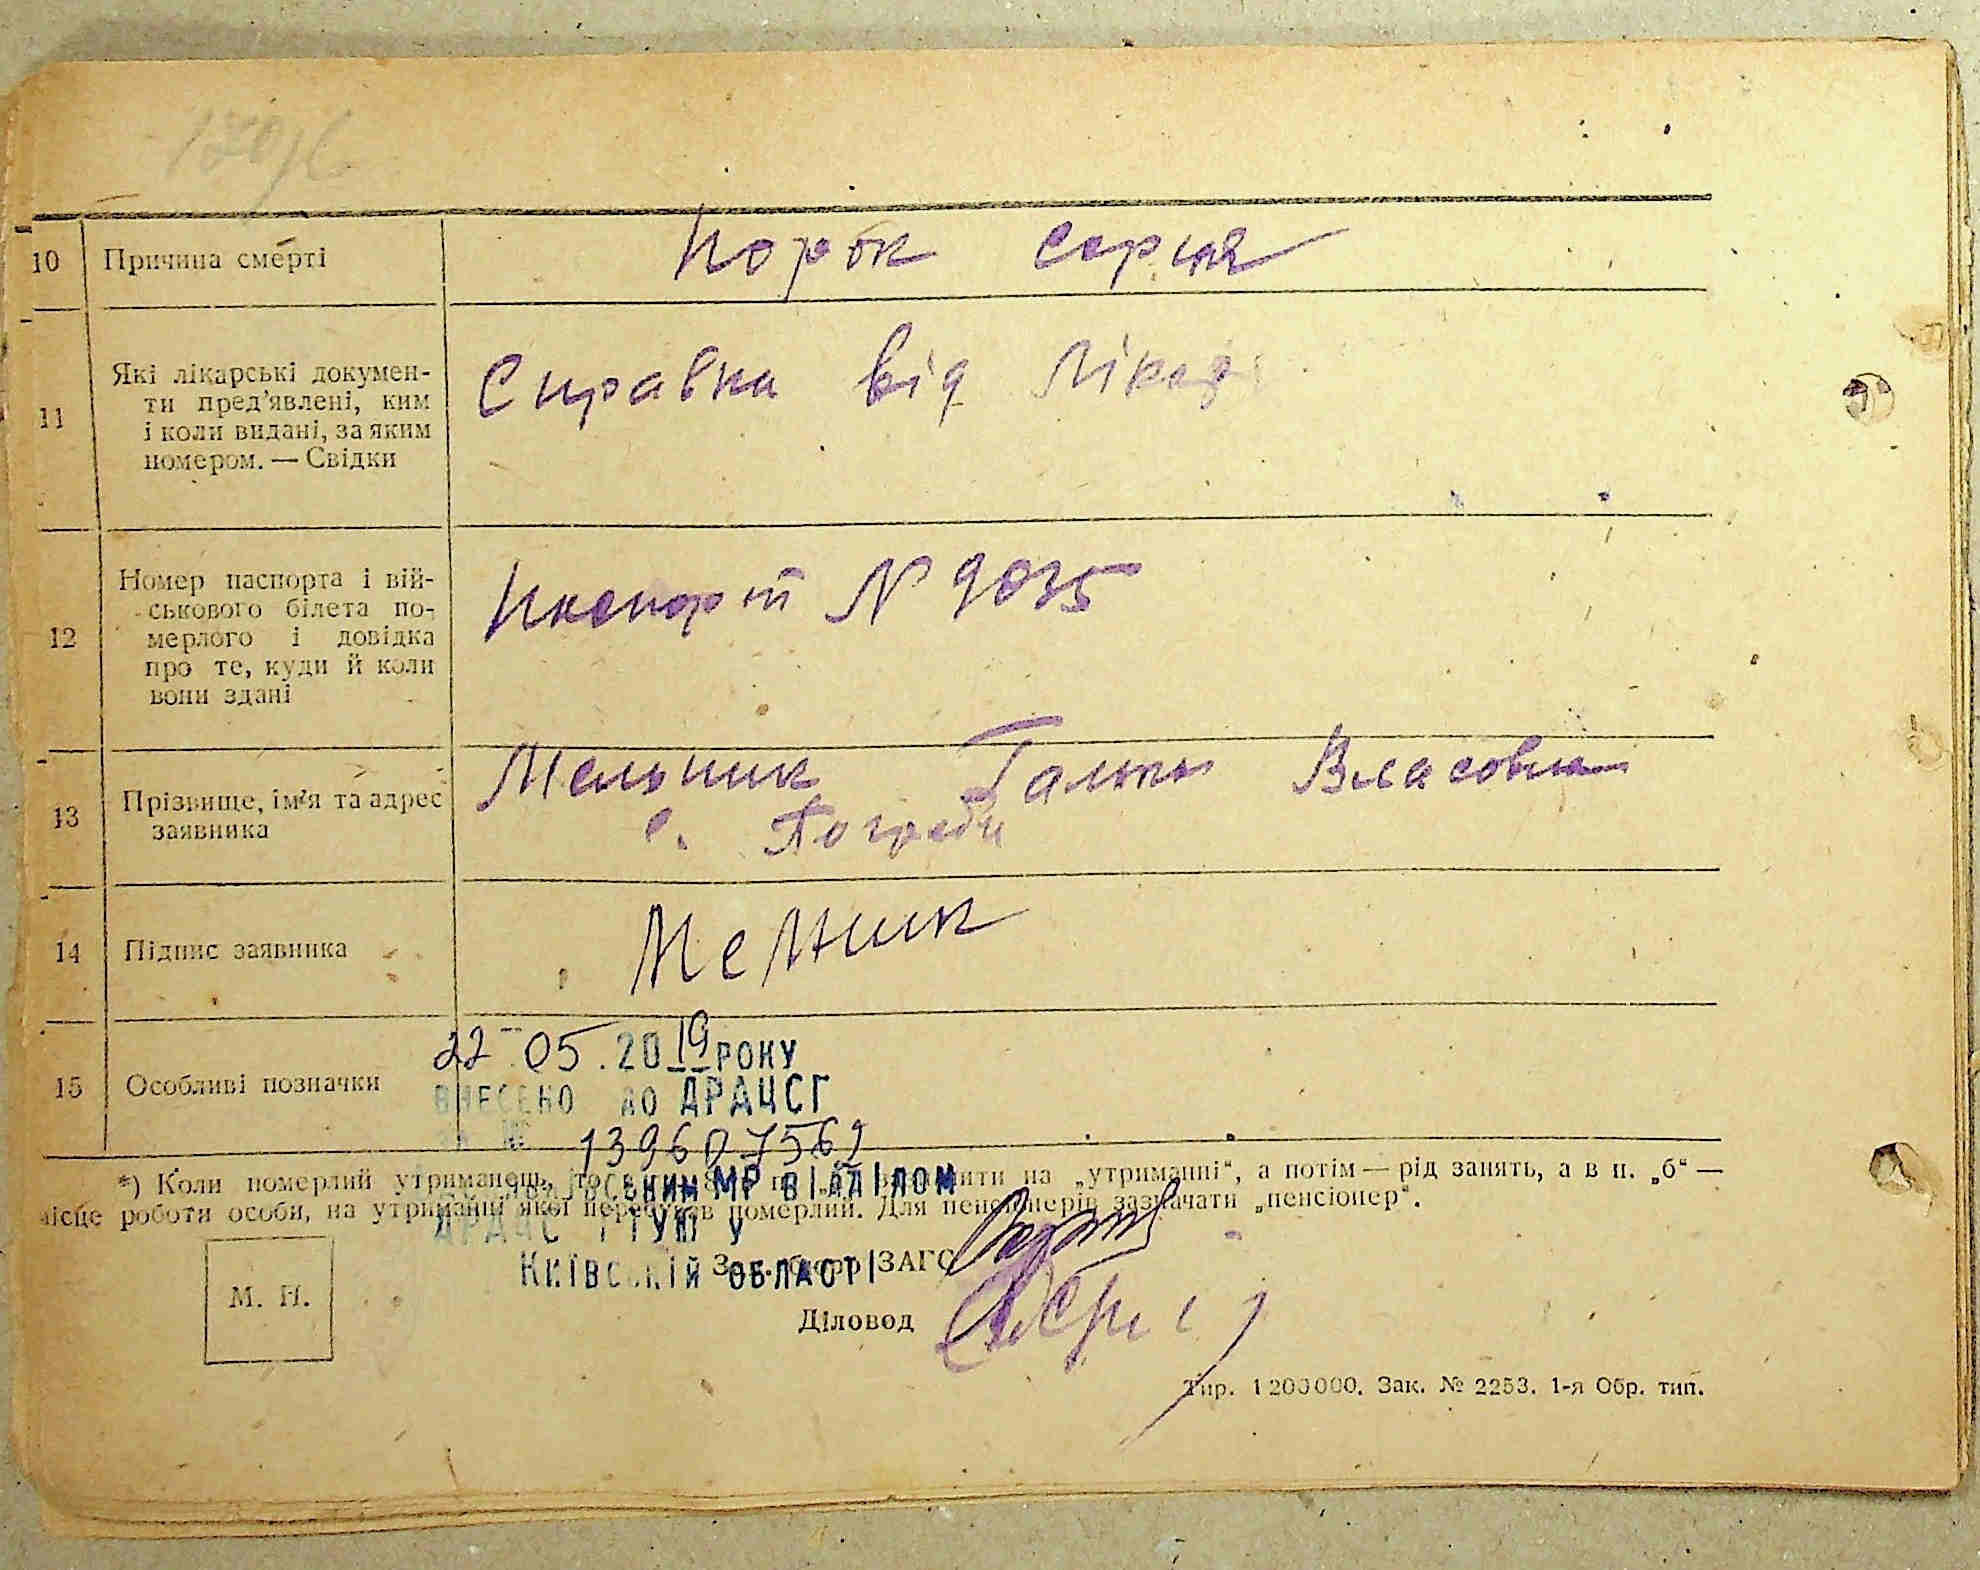 10 Причина смерті Порок серця
11 Які лікарські докумен-
ти пред'явлені, ким
і коли видані, за яким
номером. — Свідки
Справка від
12 Номер паспорта і вій-
ськового білета по-
мерлого і довідка
про те, куди й коли
вони здані
Паспорт N 9035
13 Прізвище, ім'я та адрес
заявника
Мельник Власовна
с. Погреби
14 Підпис заявника Мельник
15 Особливі позначки
22 05.2019 РОКУ
ВНЕСЕНО ДО ДРАЦСГ
ЗА № 139607569
*) Коли померлий утриманець, то на „утриманні“, а потім — рід занять, а в п. „б“ —
місце роботи особи, на утриманні якої перебував померлий. Для пенсіонерів зазначати „пенсіонер“.
МР ВІДДІЛОМ
ДРАЦС ГТУЮ У
КИЇВСЬКІЙ ОБЛАСТІ
Зав. бюро ЗАГС
М. П.
Діловод
Тир. 1200000. Зак. № 2253. 1-я Обр. тип.